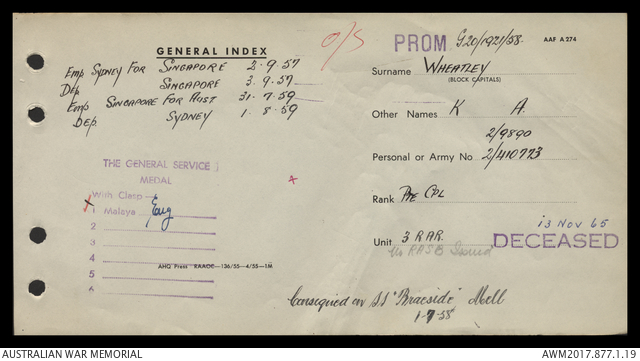 GENERAL INDEX
Emb SYDNEY FOR SINGAPORE 2-9.57
Dep. SINGAPORE 3.9.57
Emb SINGAPORE FOR AUST 31.7.59
DEP. SYDNEY 1.8.59
O/S
PROM G20/1921/58.
AAF A274
Surname WHEATLEY
(BLOCK CAPITALS)
Other Names K A.
2/9890
Personal or Army No 2/410773
Rank Pte CPL
Unit 3 RAR.
No RASB Issued
13 Nov 65
DECEASED
THE GENERAL SERVICE
MEDAL
With Clasp
x 1 Malaya
2
3
4
5
6
AHQ Press RAAOC—136/55—4/55—1M
Consigned on SS "Braeside" Melb
1-7-58
AUSTRALIAN WAR MEMORIAL
AWM2017.877.1.19